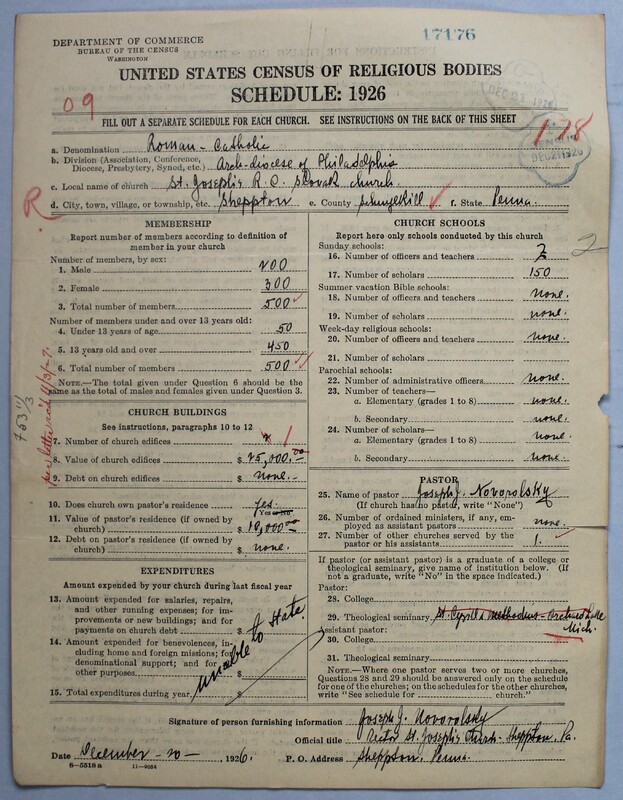 17176
DEPARTMENT OF COMMERCE
BUREAU OF THE CENSUS
WASHINGTON
UNITED STATES CENSUS OF RELIGIOUS BODIES
SCHEDULE: 1926
09
DEC 23 1926
FILL OUT A SEPARATE SCHEDULE FOR EACH CHURCH. SEE INSTRUCTIONS ON THE BACK OF THIS SHEET
178
DEC 21 1926
a. Denomination Roman - Catholic
b. Division (Association, Conference, Diocese, Presbytery, Synod, etc.) Arch-diocese of Philadelphia
c. Local name of church St. Joseph's R. C. Slovak church.
d. City, town, village, or township, etc. Sheppton e. County Schuylkill f. State Penna.
R
MEMBERSHIP
Report number of members according to definition of member in your church
Number of members, by sex:
1. Male 200
2. Female 300
3. Total number of members 500
Number of members under and over 13 years old:
4. Under 13 years of age 50
5. 13 years old and over 450
6. Total number of members 500
NOTE.—The total given under Question 6 should be the same as the total of males and females given under Question 3.
per letter rec'd 1/31/27.
CHURCH BUILDINGS
See instructions, paragraphs 10 to 12
7. Number of church edifices 1
8. Value of church edifices $ 25,000.00
9. Debt on church edifices $ none.
10. Does church own pastor's residence yes. Yes or No
11. Value of pastor's residence (if owned by church) $ 10,000.00
12. Debt on pastor's residence (if owned by church) $ none.
EXPENDITURES
Amount expended by your church during last fiscal year
13. Amount expended for salaries, repairs, and other running expenses; for improvements or new buildings; and for payments on church debt $
14. Amount expended for benevolences, including home and foreign missions; for denominational support; and for all other purposes. $
15. Total expenditures during year. $
unable to State.
CHURCH SCHOOLS
Report here only schools conducted by this church
Sunday schools:
16. Number of officers and teachers 2
2
17. Number of scholars 150
Summer vacation Bible schools:
18. Number of officers and teachers none.
19. Number of scholars none.
Week-day religious schools:
20. Number of officers and teachers none.
21. Number of scholars
Parochial schools:
22. Number of administrative officers none.
23. Number of teachers—
a. Elementary (grades 1 to 8) none.
b. Secondary none.
24. Number of scholars—
a. Elementary (grades 1 to 8) none.
b. Secondary none.
PASTOR
25. Name of pastor Joseph J. Novorolsky
(If church has no pastor, write "None")
26. Number of ordained ministers, if any, employed as assistant pastors none
27. Number of other churches served by the pastor or his assistants 1.
If pastor (or assistant pastor) is a graduate of a college or theological seminary, give name of institution below. (If not a graduate, write "No" in the space indicated.)
Pastor:
28. College
29. Theological seminary St. Cyrill & Methodius - Orchard Lake Mich.
Assistant pastor:
30. College
31. Theological seminary
NOTE.—Where one pastor serves two or more churches, Questions 28 and 29 should be answered only on the schedule for one of the churches; on the schedules for the other churches, write "See schedule for church."
Signature of person furnishing information Joseph J. Novorolsky
Official title Rector St. Joseph's Church - Sheppton, Pa.
Date December - 20 - , 1926. P. O. Address Sheppton, Penna.
8-5518 a 11-9054